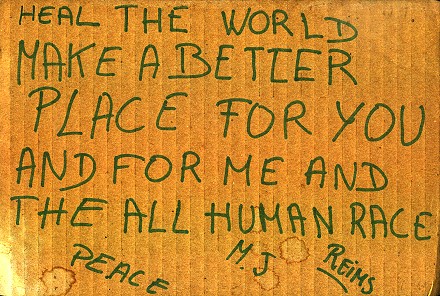 HEAL THE WORLD
MAKE A BETTER
PLACE FOR YOU
AND FOR ME AND
THE ALL HUMAN RACE
PEACE M.J REiMS